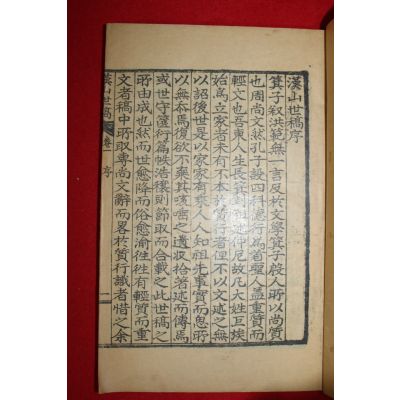 漢山世稿序
箕子叙洪範無一言及於文學箕子殷人所以尚質
也周尚文然孔子設四科德行爲首聖人盖重質而
輕文也吾東人生長箕封祖述仲尼故凡大姓巨族
始爲立家者未有不本於質行者但不以文述之無
以詔後世是以家家有乘人人知祖先事實而思所
以無忝焉復欲不棄其咳唾之遺收拾著述而傳焉
或世守篋行篇帙浩穰則節取而合載之此世稿之
所由成也然而世愈降而俗愈渝徃徃有輕質而重
文者稿中所取專尚文辭而畧於質行識者惜之余
漢山世稿 卷一 序 一